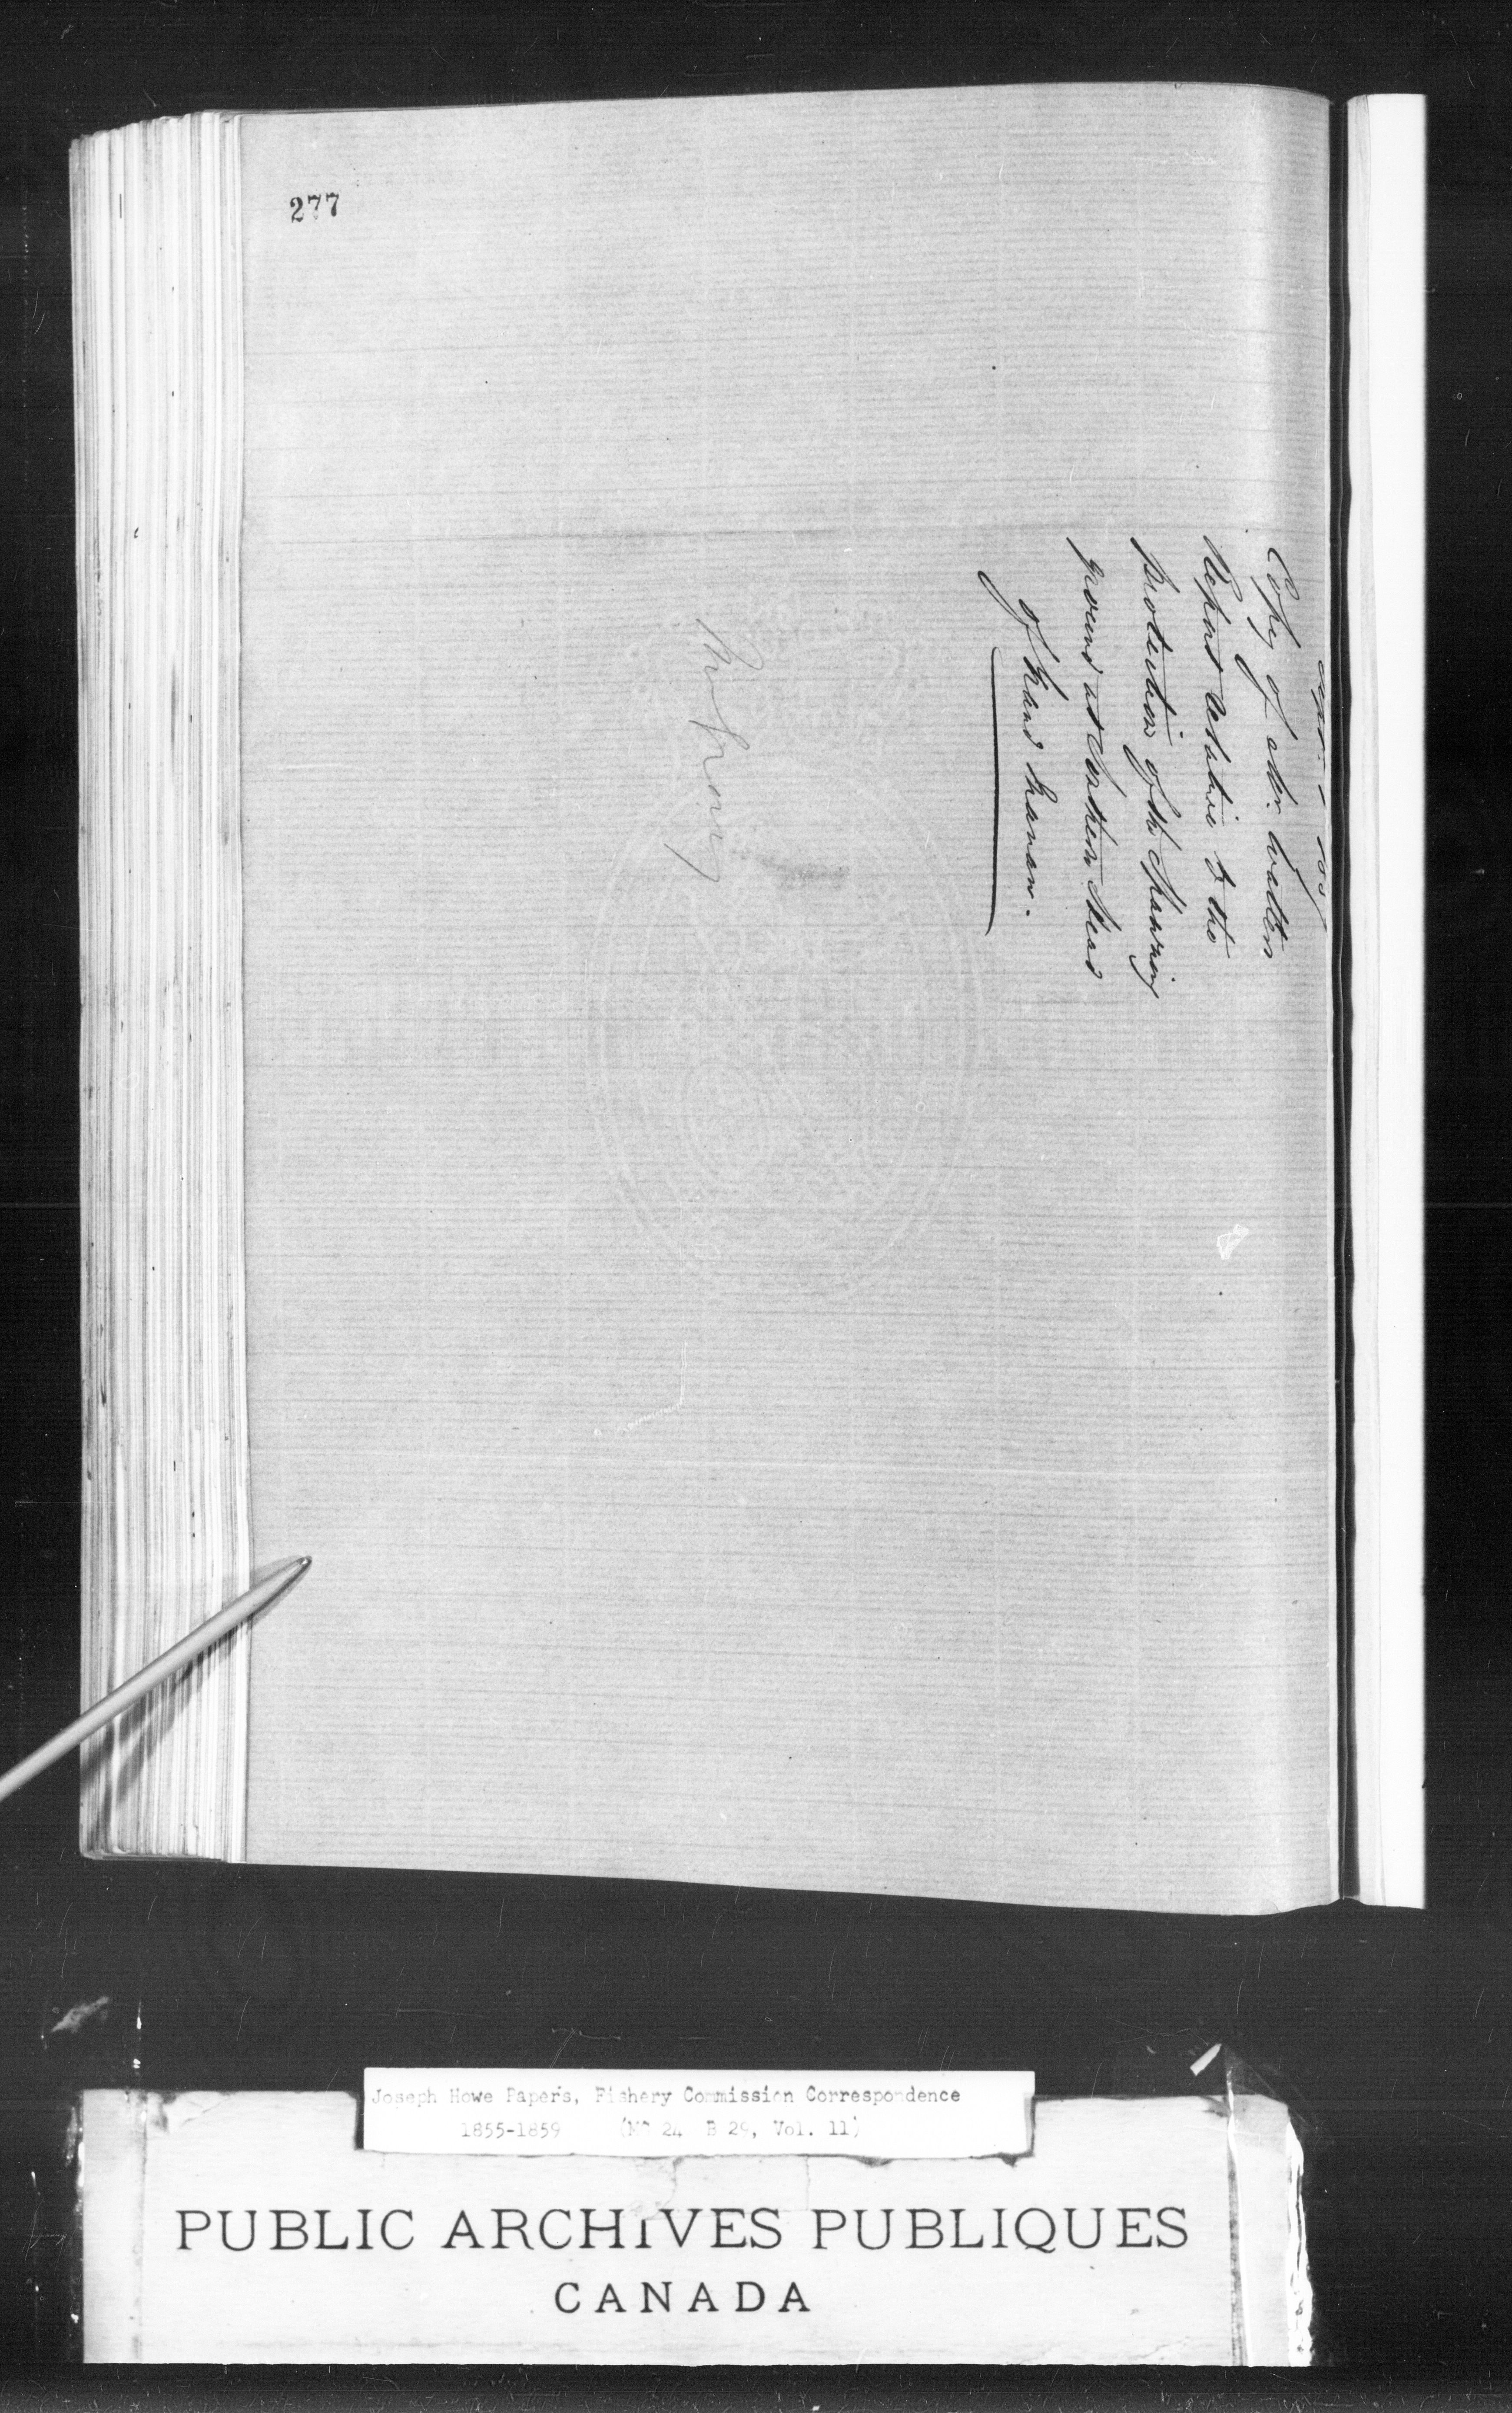 277
Copy of Mr. Walter
Report relative to the
protection of the Spawning
ground at Southern Head
of Grand Manan.
Joseph Howe Papers, Fishery Commission Correspondence
1855-1859 (MG 24 B 29, Vol. 11)
PUBLIC ARCHIVES PUBLIQUES
CANADA